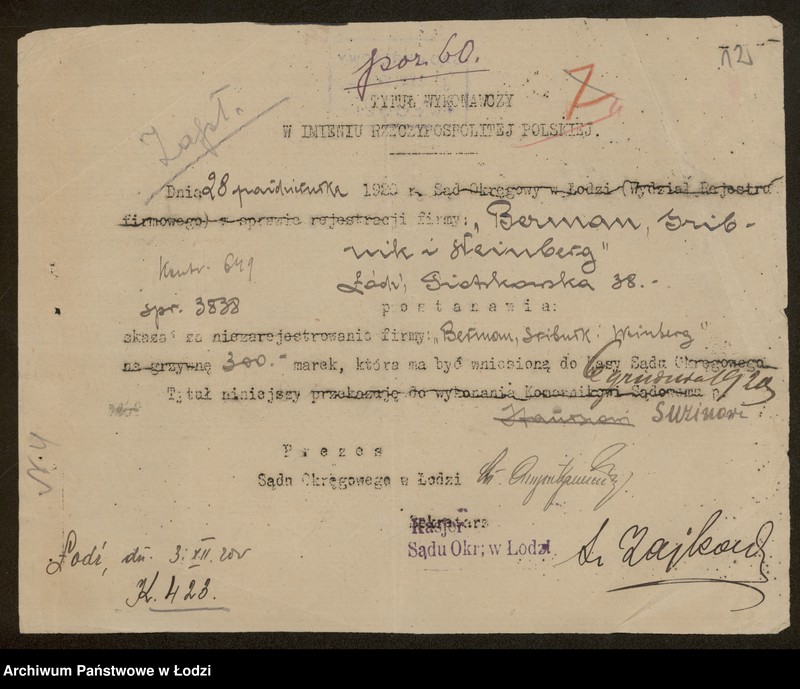 poz. 60.
12
Zapł.
7
TYTUŁ WYKONAWCZY
W IMIENIU RZECZYPOSPOLITEJ POLSKIEJ.
Dnia 28 października 1920 r. Sąd Okręgowy w Łodzi (Wydział Rejestru
firmowego) w sprawie rejestracji firmy: „Berman, Srib-
nik i Weinberg"
Kontr. 649
Łódź, Piotrkowska 38.-
spr. 3838
postanawia:
skazać za niezarejestrowanie firmy: „Berman, Sribnik i Weinberg"
na grzywnę 300.- marek, która ma być wniesioną do Kasy Sądu Okręgowego
6 grudnia 1920
Tytuł niniejszy przekazuję do wykonania Komornikowi Sądowemu p.
Prezes
Sądu Okręgowego w Łodzi
Sekretarz
Kasjer
Sądu Okr: w Łodzi
Łódź, dn. 3.XII.20r
K. 423.
Archiwum Państwowe w Łodzi